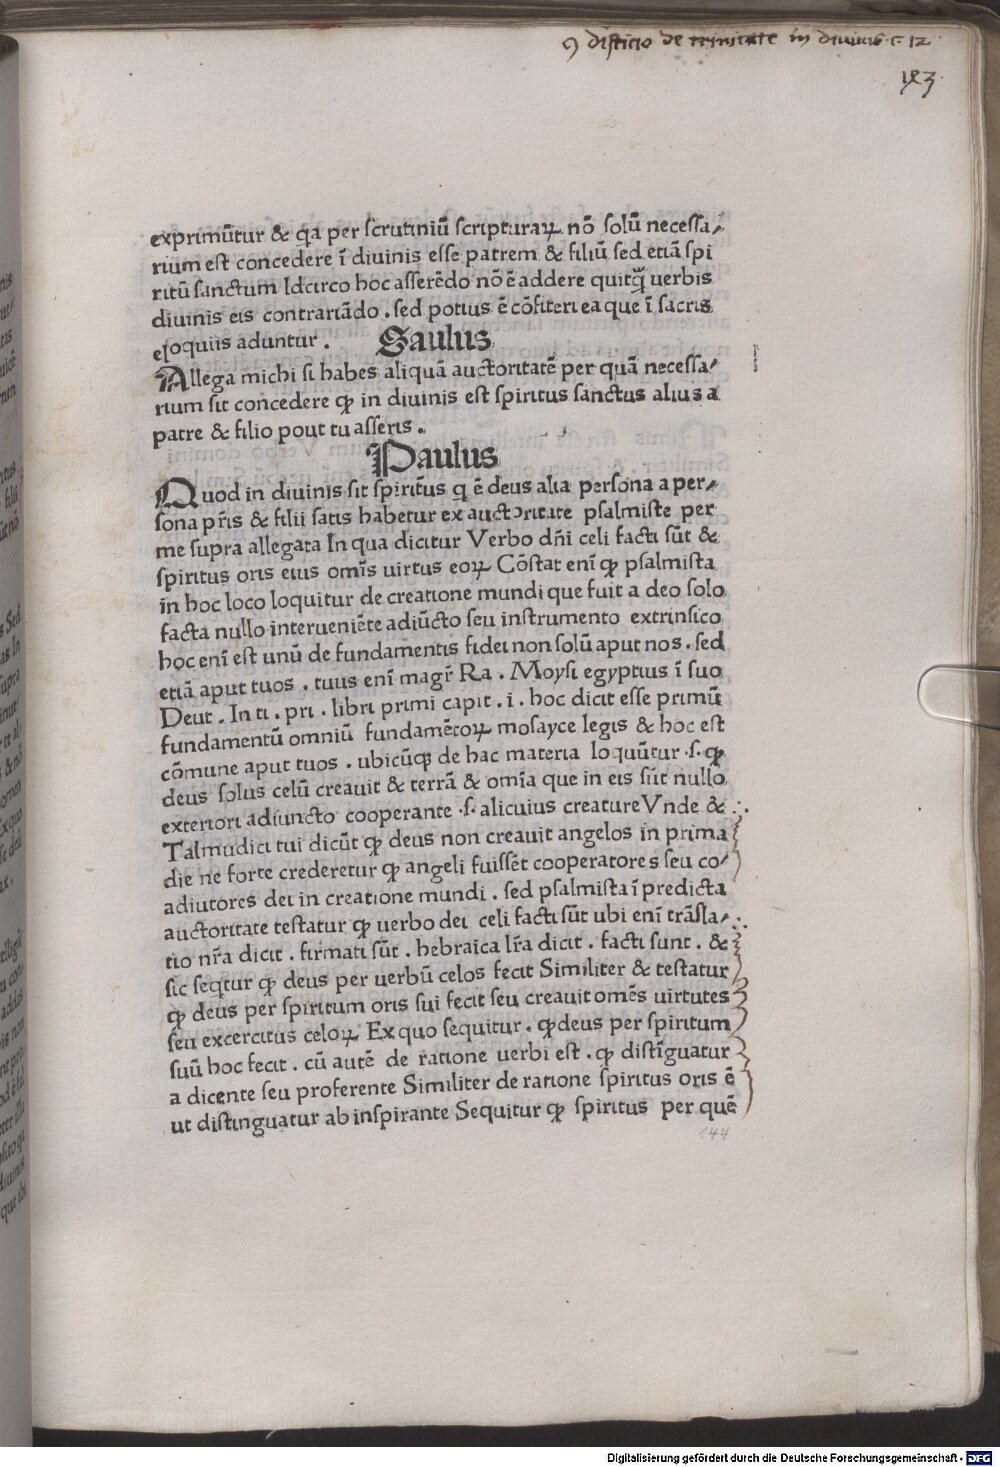 de trinitate in diuinis c. 12
exprimūtur & qa per scrutiniū scripturaꝝ nō solū necessa⸗
rium est concedere ī diuinis esse patrem & filiū sed etiā spi
ritū sanctum Idcirco hoc asserēdo nō ē addere quitꝗ̄ uerbis
diuinis eis contrariādo . sed potius ē cōfiteri ea que ī sacris
eloquiis aduntur . Saulus
Allega michi si habes aliquā auctoritatē per quā necessa⸗
rium sit concedere ꝙ in diuinis est spiritus sanctus alius a
patre & filio pout tu asseris .
Paulus
Quod in diuinis sit spirit̄us q ē deus alia persona a per⸗
sona pr̄is & filii satis habetur ex auctoritate psalmiste per
me supra allegata In qua dicitur Verbo dn̄i celi facti sūt &
spiritus oris eius om̄is uirtus eoꝝ Cōstat enī ꝙ psalmista
in hoc loco loquitur de creatione mundi que fuit a deo solo
facta nullo interueniēte adiūcto seu instrumento extrinsico
hoc enī est unū de fundamentis fidei non solū aput nos . sed
etiā aput tuos . tuus enī magr̄ Ra . Moysi egyptius ī suo
Deut . In ti . pri . libri primi capit . i . hoc dicit esse primū
fundamentū omniū fundamētoꝝ mosayce legis & hoc est
cōmune aput tuos . ubicūqꝫ de hac materia loquūtur .s. ꝙ
deus solus celū creauit & terrā & om̄ia que in eis sūt nullo
exteriori adiuncto cooperante .s. alicuius creature Vnde &
Talmudici tui dicūt ꝙ deus non creauit angelos in prima
die ne forte crederetur ꝙ angeli fuissēt cooperatores seu co⸗
adiutores dei in creatione mundi . sed psalmista ī predicta
auctoritate testatur ꝙ uerbo dei celi facti sūt ubi enī trāsla⸗
tio nr̄a dicit . firmati sūt . hebraica lr̄a dicit . facti sunt . &
sic seqtur ꝙ deus per uerbū celos fecit Similiter & testatur
ꝙ deus per spiritum oris sui fecit seu creauit omēs uirtutes
seu excercitus celoꝝ Ex quo sequitur . ꝙ deus per spiritum
suū hoc fecit . cū autē de ratione uerbi est . ꝙ distīguatur
a dicente seu proferente Similiter de ratione spiritus oris ē
ut distinguatur ab inspirante Sequitur ꝙ spiritus per quē
144
Digitalisierung gefördert durch die Deutsche Forschungsgemeinschaft - DFG